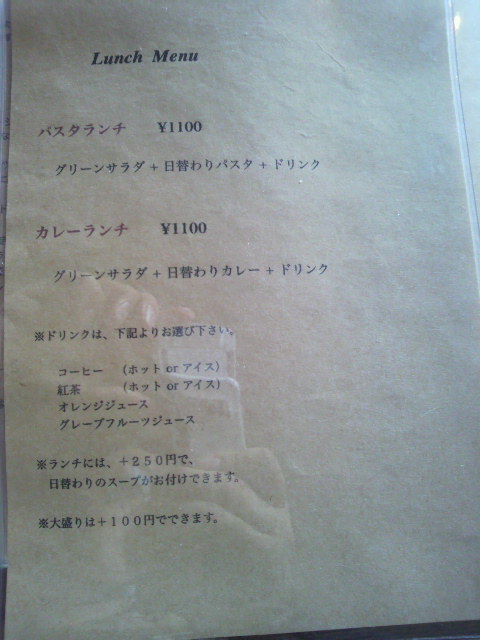 Lunch Menu
パスタランチ ¥1100
グリーンサラダ + 日替わりパスタ + ドリンク
カレーランチ ¥1100
グリーンサラダ + 日替わりカレー + ドリンク
※ドリンクは、下記よりお選び下さい。
コーヒー （ホット or アイス）
紅茶 （ホット or アイス）
オレンジジュース
グレープフルーツジュース
※ランチには、＋２５０円で、
日替わりのスープがお付けできます。
※大盛りは＋１００円でできます。